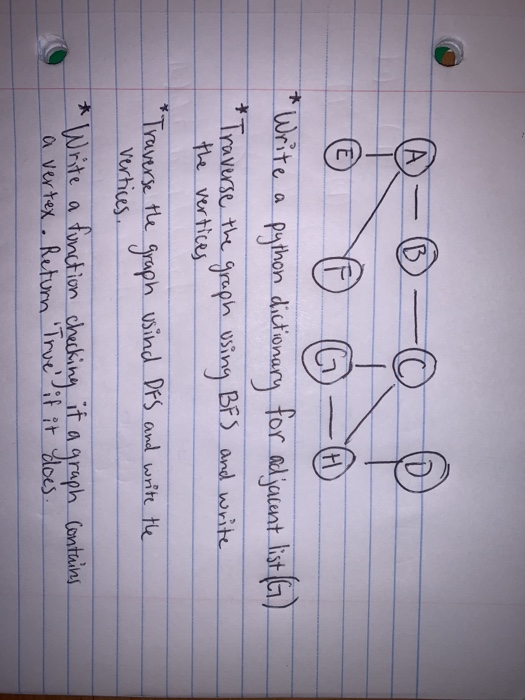 A B C D
E F G H
* Write a python dictionary for adjacent list (G)
* Traverse the graph using BFS and write
the vertices
* Traverse the graph usind DFS and write the
vertices.
* Write a function checking if a graph contains
a vertex. Return 'True' if it does.